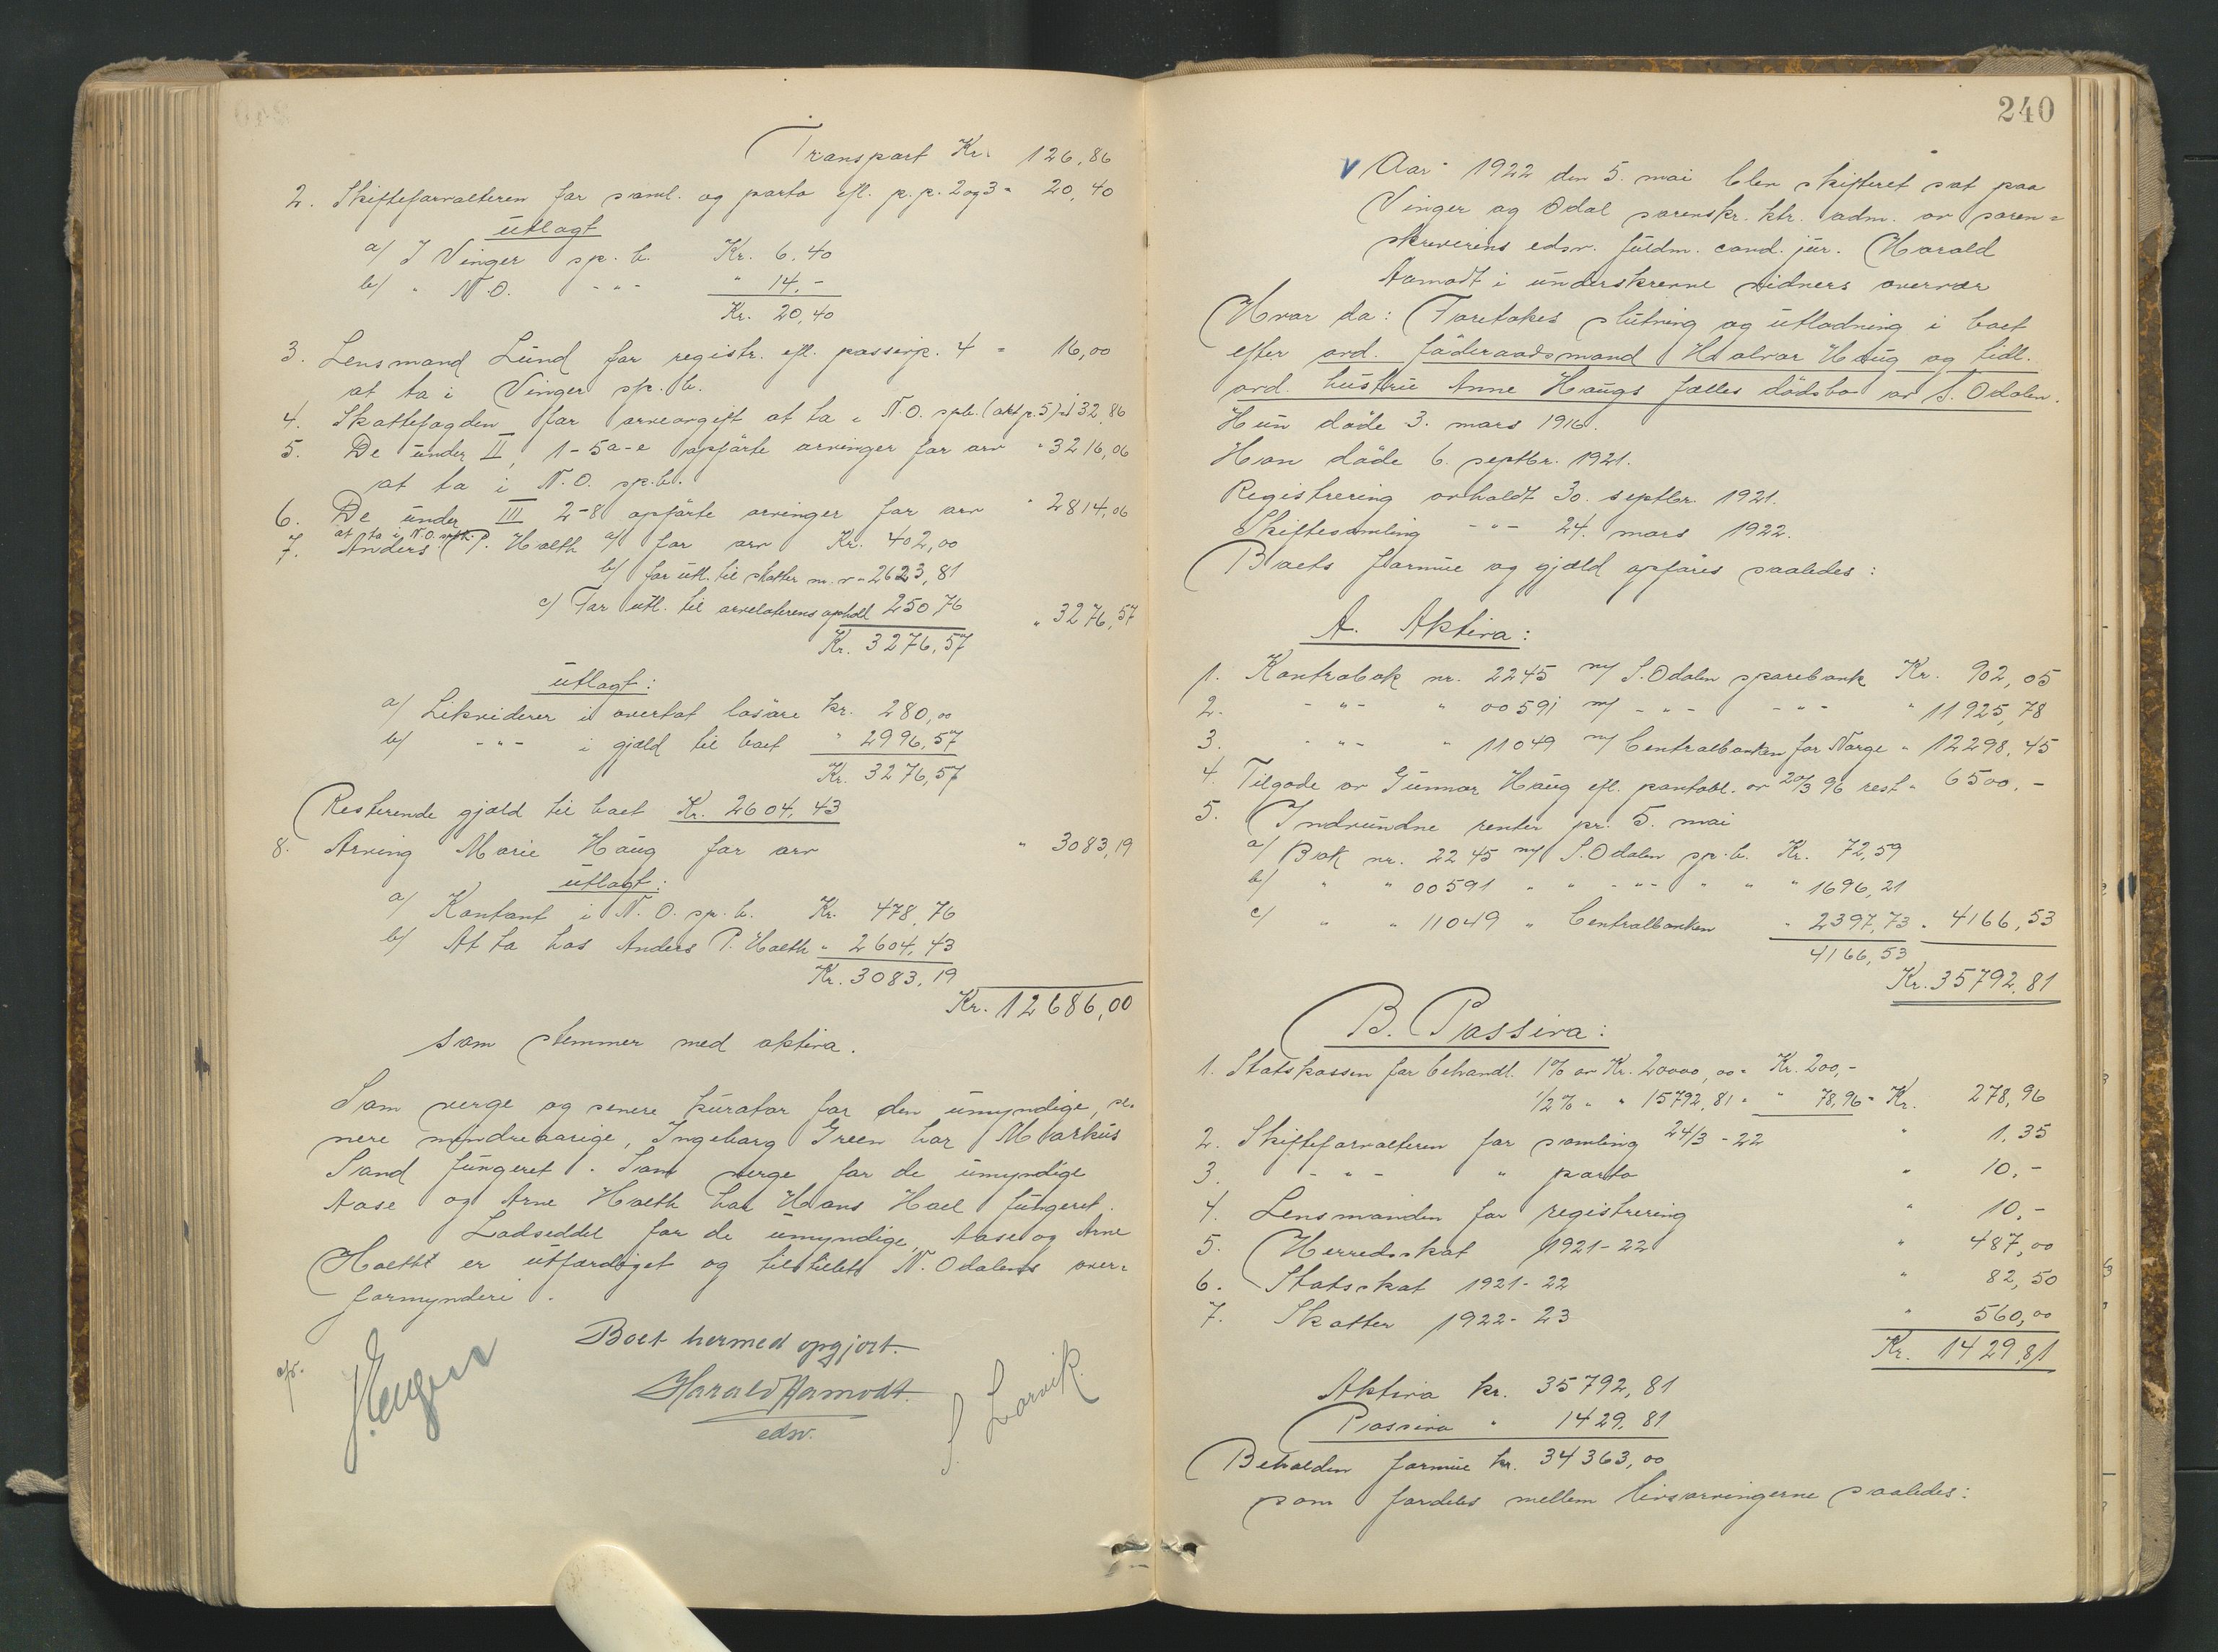 Transport Kr. 126,86
2. Skifteforvalteren for saml. og porto efl. p.p. 2 og 3 = 20,40
utlagt
a/ I Vinger sp.b. Kr. 6,40
b/ " N.O. - " - " 14,-
Kr. 20,40
3. Lensmand Lund for registr. efl. passivp. 4 = 16,00
at ta i Vinger sp.b.
4. Skattefogden for arveavgift at ta i N.O. spb. (akt p. 5) " 132,86
5. De under II, 1-5a-e opförte arvinger for arv " 3216,06
at ta i N.O. sp.b.
6. De under III 2-8 opförte arvinger for arv " 2814,06
at ta i N.O. spb.
7. Anders P. Holth a/ for arv Kr. 402,00
b/ for utl. til skatter m.v. " 2623,81
c/ For utl. til arvelaterens ophold 250 76 " 3276,57
Kr. 3276,57
utlagt:
a/ Likviderer i overtat losöre kr. 280,00
b/ - " - i gjæld til boet " 2996,57
Kr. 3276,57
Resterende gjæld til boet Kr. 2604,43
8. Arving Marie Haug for arv " 3083,19
utlagt:
a/ Kontant i N.O. sp.b. Kr. 478,76
b/ At ta hos Anders P. Holth " 2604,43
Kr. 3083,19
Kr. 12686,00
som stemmer med aktiva.
Som verge og senere kurator for den umyndige, se-
nere mindreaarige, Ingeborg Green har Markus
Sand fungeret. Som verge for de umyndige
Aase og Arne Holth har Hans Hoel fungeret.
Lodseddel for de umyndige, Aase og Arne
Holth er utfærdiget og tilstillet N. Odalens over-
formynderi.
Boet hermed opgjort.
Harald Aamodt.
edsv.
S. Larvik
240
v Aar 1922 den 5. mai blev skifteret sat paa
Vinger og Odal sorenskr. ktr. adm. av soren=
skriverens edsv. fuldm. cand. jur. Harald
Aamodt i underskrevne vidners overvær
Hvor da: Foretokes slutning og utlodning i boet
efter avd. föderaadsmand Halvor Haug og tidl.
avd. hustru Anne Haugs fælles dödsbo av S. Odalen.
Hun döde 3. mars 1916.
Han döde 6. septbr. 1921.
Registrering avholdt 30. septbr. 1921.
Skiftesamling - " - 24. mars 1922.
Boets formue og gjæld opföres saaledes:
A. Aktiva:
1. Kontrabok nr. 2245 m/ S. Odalen sparebank Kr. 902,05
2. - " - " 00591 m/ - " - - " - " 11925,78
3. - " - " 11049 m/ Centralbanken for Norge " 12298,45
4. Tilgode av Gunnar Haug efl. pantobl. av 20/3 96 rest " 6500,-
5. Indvundne renter pr. 5. mai
a/ Bok nr. 2245 m/ S. Odalen sp.b. Kr. 72,59
b/ " " 00591 " " - " - " " " 1696,21
c/ " " 11049 " Centralbanken " 2397,73 " 4166,53
4166,53
Kr. 35792,81
B. Passiva:
1. Statskassen for behandl. 1% av Kr. 20000,00 = Kr. 200,-
1/2% " " 15792,81 = " 78,96 = Kr. 278,96
2. Skifteforvalteren for samling 24/3 - 22 " 1,35
3. - " - " porto " 10,-
4. Lensmanden for registrering " 10,-
5. Herredsskat 1921-22 " 487,00
6. Statsskat 1921-22 " 82,50
7. Skatter 1922-23 " 560,00
Kr. 1429,81
Aktiva kr. 35792,81
Passiva " 1429,81
Beholden formue kr. 34363,00
som fordeles mellem livsarvingerne saaledes: